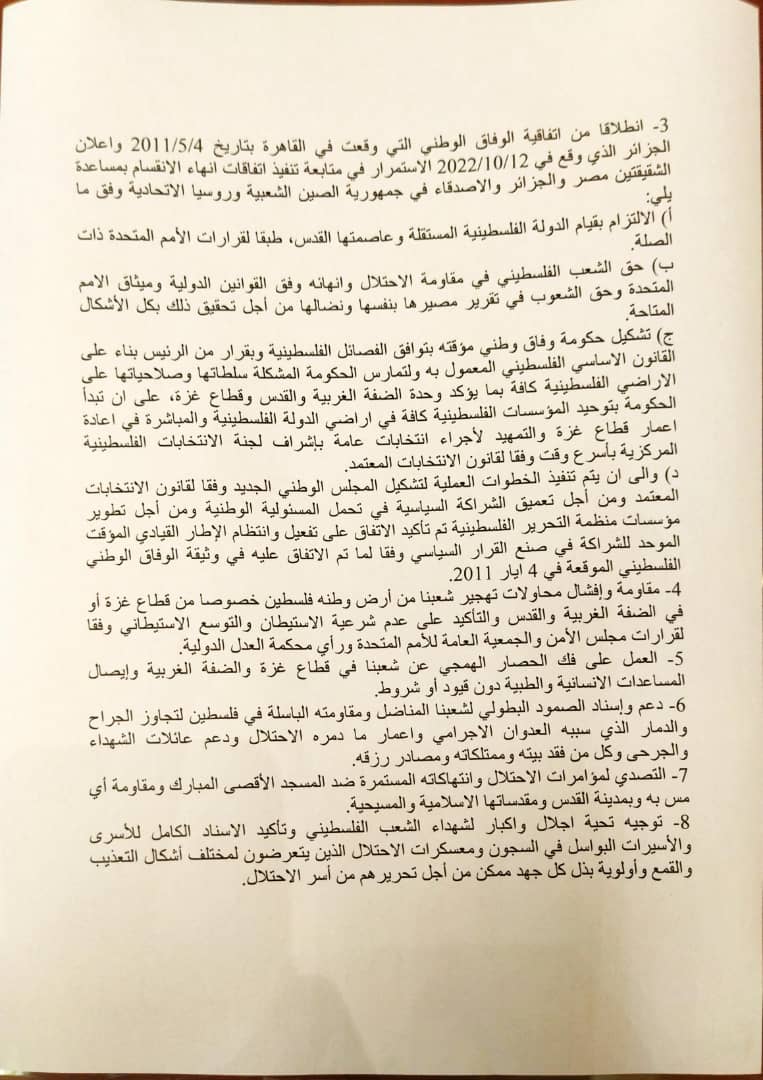 3- انطلاقا من اتفاقية الوفاق الوطني التي وقعت في القاهرة بتاريخ 2011/5/4 واعلان
الجزائر الذي وقع في 2022/10/12 الاستمرار في متابعة تنفيذ اتفاقات انهاء الانقسام بمساعدة
الشقيقتين مصر والجزائر والاصدقاء في جمهورية الصين الشعبية وروسيا الاتحادية وفق ما
يلي:
أ) الالتزام بقيام الدولة الفلسطينية المستقلة وعاصمتها القدس، طبقا لقرارات الأمم المتحدة ذات
الصلة.
ب) حق الشعب الفلسطيني في مقاومة الاحتلال وانهائه وفق القوانين الدولية وميثاق الامم
المتحدة وحق الشعوب في تقرير مصيرها بنفسها ونضالها من أجل تحقيق ذلك بكل الأشكال
المتاحة.
ج) تشكيل حكومة وفاق وطني مؤقته بتوافق الفصائل الفلسطينية وبقرار من الرئيس بناء على
القانون الاساسي الفلسطيني المعمول به ولتمارس الحكومة المشكلة سلطاتها وصلاحياتها على
الاراضي الفلسطينية كافة بما يؤكد وحدة الضفة الغربية والقدس وقطاع غزة، على ان تبدأ
الحكومة بتوحيد المؤسسات الفلسطينية كافة في اراضي الدولة الفلسطينية والمباشرة في اعادة
اعمار قطاع غزة والتمهيد لأجراء انتخابات عامة بإشراف لجنة الانتخابات الفلسطينية
المركزية بأسرع وقت وفقا لقانون الانتخابات المعتمد.
د) والى ان يتم تنفيذ الخطوات العملية لتشكيل المجلس الوطني الجديد وفقا لقانون الانتخابات
المعتمد ومن أجل تعميق الشراكة السياسية في تحمل المسئولية الوطنية ومن أجل تطوير
مؤسسات منظمة التحرير الفلسطينية تم تأكيد الاتفاق على تفعيل وانتظام الإطار القيادي المؤقت
الموحد للشراكة في صنع القرار السياسي وفقا لما تم الاتفاق عليه في وثيقة الوفاق الوطني
الفلسطيني الموقعة في 4 ايار 2011.
4- مقاومة وإفشال محاولات تهجير شعبنا من أرض وطنه فلسطين خصوصا من قطاع غزة أو
في الضفة الغربية والقدس والتأكيد على عدم شرعية الاستيطان والتوسع الاستيطاني وفقا
لقرارات مجلس الأمن والجمعية العامة للأمم المتحدة ورأي محكمة العدل الدولية.
5- العمل على فك الحصار الهمجي عن شعبنا في قطاع غزة والضفة الغربية وإيصال
المساعدات الانسانية والطبية دون قيود أو شروط.
6- دعم وإسناد الصمود البطولي لشعبنا المناضل ومقاومته الباسلة في فلسطين لتجاوز الجراح
والدمار الذي سببه العدوان الاجرامي واعمار ما دمره الاحتلال ودعم عائلات الشهداء
والجرحى وكل من فقد بيته وممتلكاته ومصادر رزقه.
7- التصدي لمؤامرات الاحتلال وانتهاكاته المستمرة ضد المسجد الأقصى المبارك ومقاومة أي
مس به وبمدينة القدس ومقدساتها الاسلامية والمسيحية.
8- توجيه تحية اجلال واكبار لشهداء الشعب الفلسطيني وتأكيد الاسناد الكامل للأسرى
والأسيرات البواسل في السجون ومعسكرات الاحتلال الذين يتعرضون لمختلف أشكال التعذيب
والقمع وأولوية بذل كل جهد ممكن من أجل تحريرهم من أسر الاحتلال.